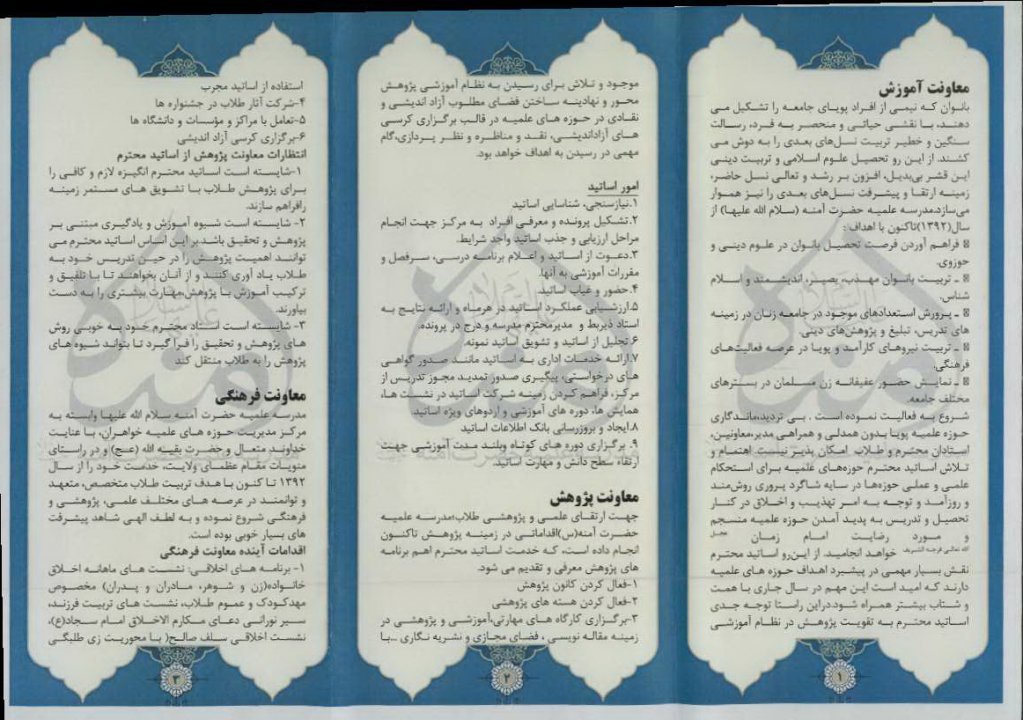 معاونت آموزش
بانـوان کـه نیمـی از افـراد پویـای جامعـه را تشـکیل مـی
دهنـد، بـا نقشـی حیاتـی و منحصـر بـه فـرد، رسـالت
سـنگین و خطیـر تربیـت نسـل‌های بعـدی را بـه دوش مـی
کشـند. از ایـن رو تحصیـل علـوم اسـلامی و تربیـت دینـی
ایـن قشـر بی‌بدیـل، افـزون بـر رشـد و تعالـی نسـل حاضـر،
زمینـه ارتقـا و پیشـرفت نسـل‌های بعـدی را نیـز همـوار
می‌سازد.مدرسـه علمیـه حضـرت آمنـه (سـلام الله علیهـا) از
سال(۱۳۹۲)تاکنون با اهداف :
فراهـم آوردن فرصـت تحصیـل بانـوان در علـوم دینـی و
حوزوی.
ـ تربیـت بانـوان مهـذب، بصیـر، اندیشـمند و اسـلام
شناس.
ـ پـرورش اسـتعدادهای موجـود در جامعـه زنـان در زمینـه
های تدریس، تبلیغ و پژوهش‌های دینی.
ـ تربیـت نیروهـای کارآمـد و پویـا در عرصـه فعالیت‌هـای
فرهنگی.
ـ نمایـش حضـور عفیفانـه زن مسـلمان در بسـترهای
مختلف جامعه.
شـروع بـه فعالیـت نمـوده اسـت . بـی تردید،مانـدگاری
حـوزه علمیـه پویـا بـدون همدلـی و همراهـی مدیر،معاونیـن،
اسـتادان محتـرم و طـلاب امـکان پذیـر نیسـت. اهتمـام و
تـلاش اسـاتید محتـرم حوزه‌هـای علمیـه بـرای اسـتحکام
علمـی و عملـی حوزه‌هـا در سـایه شـاگرد پـروری روش‌منـد
و روزآمـد و توجـه بـه امـر تهذیـب و اخـلاق در کنـار
تحصیـل و تدریـس بـه پدیـد آمـدن حـوزه علمیـه منسـجم
و مـورد رضایـت امـام زمـان عجـل
الله تعالی فرجه الشریف خواهـد انجامیـد. از این‌رو اسـاتید محتـرم
نقـش بسـیار مهمـی در پیشـبرد اهـداف حـوزه هـای علمیـه
دارنـد کـه امیـد اسـت ایـن مهـم در سـال جـاری بـا همـت
و شـتاب بیشـتر همـراه شـود.دراین راسـتا توجـه جـدی
اسـاتید محتـرم بـه تقویـت پژوهـش در نظـام آموزشـی
۱
موجـود و تـلاش بـرای رسـیدن بـه نظـام آموزشـی پژوهـش
محـور و نهادینـه سـاختن فضـای مطلـوب آزاد اندیشـی و
نقـادی در حـوزه هـای علمیـه در قالـب برگـزاری کرسـی
هـای آزاداندیشـی، نقـد و مناظـره و نظـر پـردازی،گام
مهمی در رسیدن به اهداف خواهد بود.
امور اساتید
۱.نیازسنجی، شناسایی اساتید
۲.تشـکیل پرونـده و معرفـی افـراد بـه مرکـز جهـت انجـام
مراحل ارزیابی و جذب اساتید واجد شرایط.
۳.دعـوت از اسـاتید و اعـلام برنامـه درسـی، سـرفصل و
مقررات آموزشی به آنها.
۴.حضور و غیاب اساتید.
۵.ارزشـیابی عملکـرد اسـاتید در هرمـاه و ارائـه نتایـج بـه
استاد ذیربط و مدیرمحترم مدرسه و درج در پرونده.
۶.تجلیل از اساتید و تشویق اساتید نمونه.
۷.ارائـه خدمـات اداری بـه اسـاتید ماننـد صـدور گواهـی
هـای درخواسـتی، پیگیـری صـدور تمدیـد مجـوز تدریـس از
مرکـز، فراهـم کـردن زمینـه شـرکت اسـاتید در نشسـت هـا،
همایش ها، دوره های آموزشی و اردوهای ویژه اساتید.
۸.ایجاد و بروزرسانی بانک اطلاعات اساتید
۹. برگـزاری دوره هـای کوتـاه وبلنـد مـدت آموزشـی جهـت
ارتقاء سطح دانش و مهارت اساتید.
معاونت پژوهش
جهـت ارتقـای علمـی و پژوهشـی طلاب،مدرسـه علمیـه
حضـرت آمنه(س)اقداماتـی در زمینـه پژوهـش تاکنـون
انجـام داده اسـت، کـه خدمـت اسـاتید محتـرم اهـم برنامـه
های پژوهش معرفی و تقدیم می شود.
۱-فعال کردن کانون پژوهش
۲-فعال کردن هسته های پژوهشی
۳-برگـزاری کارگاه هـای مهارتی،آموزشـی و پژوهشـی در
زمینـه مقالـه نویسـی ، فضـای مجـازی و نشـریه نـگاری ..بـا
۲
استفاده از اساتید مجرب
۴-شرکت آثار طلاب در جشنواره ها
۵-تعامل با مراکز و مؤسسات و دانشگاه ها
۶-برگزاری کرسی آزاد اندیشی
انتظارات معاونت پژوهش از اساتید محترم
۱-شایسـته اسـت اسـاتید محتـرم انگیـزه لازم و کافـی را
بـرای پژوهـش طـلاب بـا تشـویق هـای مسـتمر زمینـه
رافراهم سازند.
۲- شایسـته اسـت شـیوه آمـوزش و یادگیـری مبتنـی بـر
پژوهـش و تحقیـق باشـد.بر ایـن اسـاس اسـاتید محتـرم مـی
تواننـد اهمیـت پژوهـش را در حیـن تدریـس خـود بـه
طـلاب یـاد آوری کننـد و از آنـان بخواهنـد تـا بـا تلفیـق و
ترکیـب آمـوزش بـا پژوهش،مهـارت بیشـتری را بـه دسـت
بیاورند.
۳- شایسـته اسـت اسـتاد محتـرم خـود بـه خوبـی روش
هـای پژوهـش و تحقیـق را فـرا گیـرد تـا بتوانـد شـیوه هـای
پژوهش را به طلاب منتقل کند
معاونت فرهنگی
مدرسـه علمیـه حضـرت آمنـه سـلام الله علیهـا وابسـته بـه
مرکـز مدیریـت حـوزه هـای علمیـه خواهـران، بـا عنایـت
خداونـد متعـال و حضـرت بقیـه الله (عـج) و در راسـتای
منویـات مقـام عظمـای ولایـت، خدمـت خـود را از سـال
۱۳۹۲ تـا کنـون بـا هـدف تربیـت طـلاب متخصـص، متعهـد
و توانمنـد در عرصـه هـای مختلـف علمـی، پژوهشـی و
فرهنگـی شـروع نمـوده و بـه لطـف الهـی شـاهد پیشـرفت
های بسیار خوبی بوده است.
اقدامات آینده معاونت فرهنگی
۱- برنامـه هـای اخلاقـی: نشسـت هـای ماهانـه اخـلاق
خانـواده(زن و شـوهر، مـادران و پـدران) مخصـوص
مهدکـودک و عمـوم طـلاب، نشسـت هـای تربیـت فرزنـد،
سـیر نورانـی دعـای مـکارم الاخـلاق امـام سـجاد(ع)،
نشسـت اخلاقـی سـلف صالـح( بـا محوریـت زی طلبگـی
۳